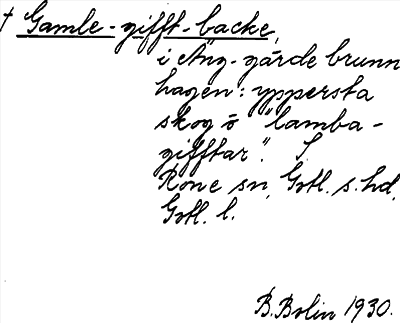 † Gamle-gifft-backe,
i Äng-gärde brunn
hagen: yppersta
skog ō "lamba-
gifftar". S
Rone sn, Gotl. s. hd,
Gotl. l.
B. Bolin 1930.